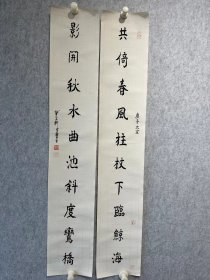 共倚春風拄杖下臨鯨海
影開秋水曲池斜度鸞橋